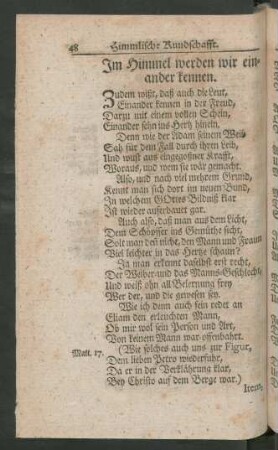 48 Himmlische Kundschafft.
Im Himmel werden wir ein-
ander kennen.
Zudem wißt, daß auch die Leut,
Einander kennen in der Freud,
Darzu mit einem vollen Schein,
Einander sehn ins Hertz hinein.
Denn wie der Adam seinem Weib
Sah für dem Fall durch ihren Leib,
Und wust aus eingegoßner Krafft,
Woraus, und wem sie wär gemacht.
Also, und nach viel mehrem Grund,
Kennt man sich dort im neuen Bund,
In welchem GOttes Bildniß klar
Ist wieder auferbauet gar.
Auch also, daß man aus dem Licht,
Dem Schöpffer ins Gemüthe sicht,
Solt man den nicht, den Mann und Fraun
Viel leichter in das Hertze schaun?
Ja man erkennt daselbst erst recht,
Der Weiber und das Manns-Geschlecht,
Und weiß ohn all Belernung frey
Wer der, und die gewesen sey.
Wie ich denn auch sein redet an
Eliam den erleuchten Mann,
Ob mir wol sein Person und Art,
Von keinem Mann war offenbahrt.
(Wie solches auch uns zur Figur,
Matt. 17. Dem lieben Petro wiederfuhr,
Da er in der Verklährung klar,
Bey Christo auf dem Berge war.)
Item,